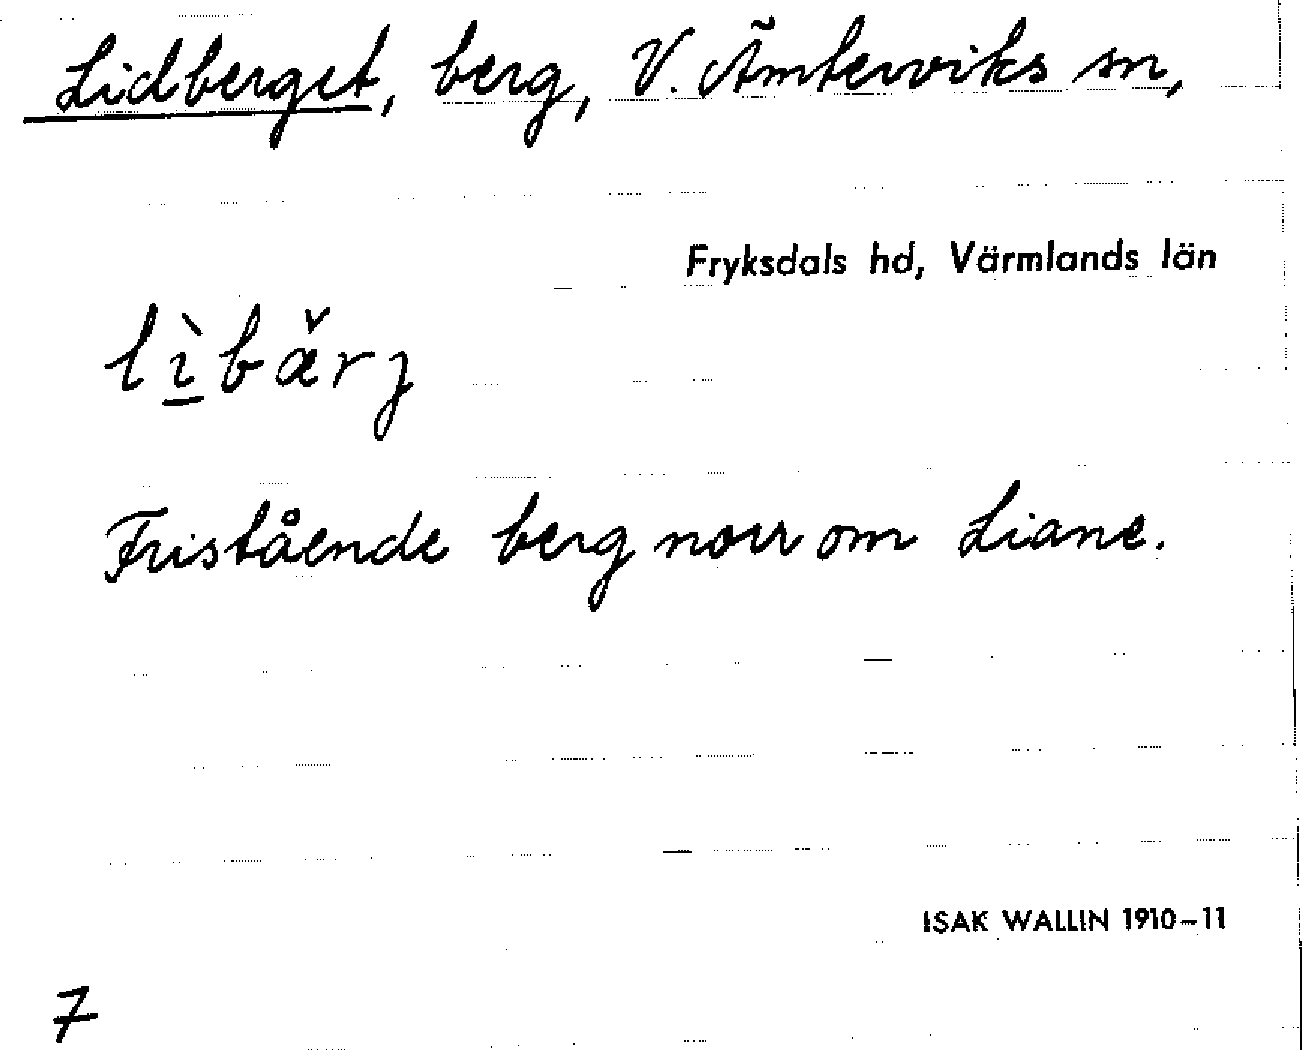 Lidberget, berg, V. Ämterviks sn,
Fryksdals hd, Värmlands län
lı̱̀bæ̌rȷ
Fristående berg norr om Liane.
ISAK WALLIN 1910-11
7